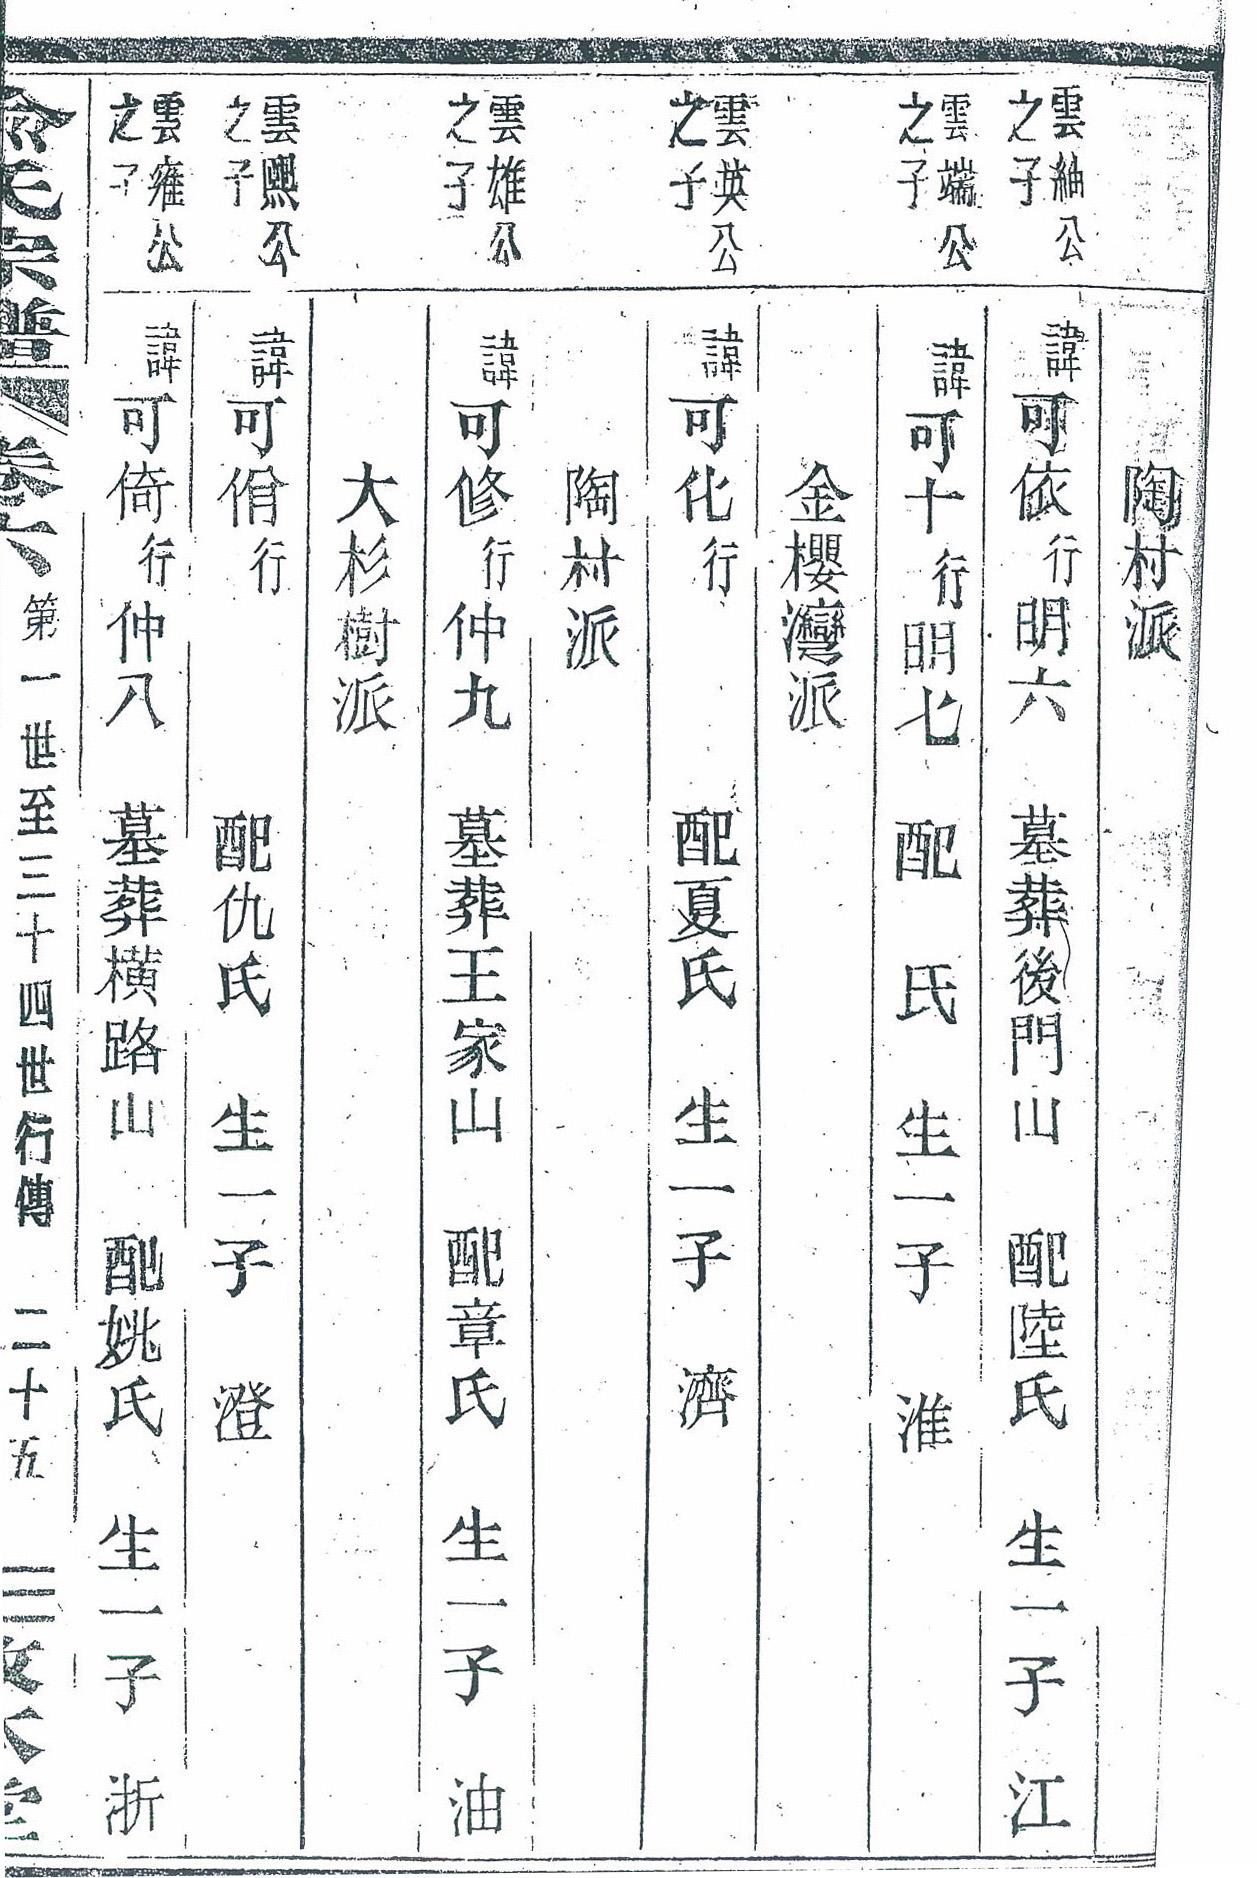 陶村派
雲紬公之子
諱可依行明六 墓葬後門山 配陸氏 生一子 江
雲端公之子
諱可十行明七 配 氏 生一子 淮
金櫻灣派
雲英公之子
諱可化行 配夏氏 生一子 濟
陶村派
雲雄公之子
諱可修行仲九 墓葬王家山 配章氏 生一子 油
大杉樹派
雲熈公之子
諱可佾行 配仇氏 生一子 澄
雲雍公之子
諱可倚行仲八 墓葬橫路山 配姚氏 生一子 浙
氏宗譜 卷六 第一世至三十四世行傳 二十五 三